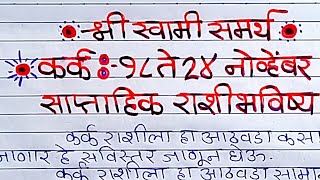 -श्री स्वामी समर्थ
कर्क :-१८ ते २४ नोव्हेंबर
साप्ताहिक राशीभविष्य
कर्क राशीला हा आठवडा कसा
जाणार हे सविस्तर जाणून घेऊ.
कर्क राशीला हा आठवडा सामा